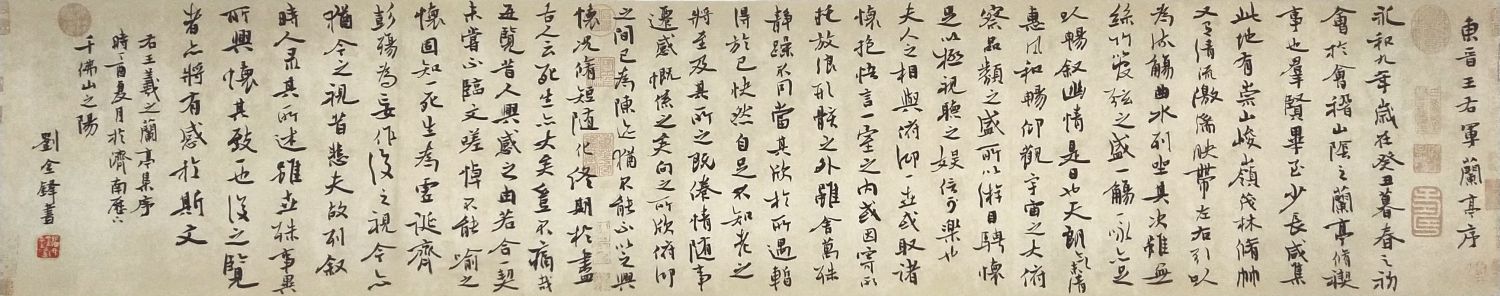 東晉王右軍蘭亭序
永和九年歲在癸丑暮春之初
會於會稽山陰之蘭亭脩禊
事也羣賢畢至少長咸集
此地有崇山峻嶺茂林脩竹
又有清流激湍映帶左右引以
為流觴曲水列坐其次雖無
絲竹管絃之盛一觴一詠亦足
以暢敘幽情是日也天朗氣清
惠風和暢仰觀宇宙之大俯
察品類之盛所以游目騁懷
足以極視聽之娛信可樂也
夫人之相與俯仰一世或取諸
懷抱悟言一室之內或因寄所
託放浪形骸之外雖舍萬殊
靜躁不同當其欣於所遇暫
得於己快然自足不知老之
將至及其所之既倦情隨事
遷感慨係之矣向之所欣俯仰
之間已為陳迹猶不能不以之興
懷況脩短隨化終期於盡
古人云死生亦大矣豈不痛哉
每覽昔人興感之由若合一契
未嘗不臨文嗟悼不能喻之
懷固知死生為虛誕齊
彭殤為妄作後之視今亦
猶今之視昔悲夫故列敘
時人录其所述雖世殊事異
所興懷其致一也後之覽
者亦將有感於斯文
右王羲之蘭亭集序
時夏月於濟南歷下
千佛山之陽
劉全鋒書